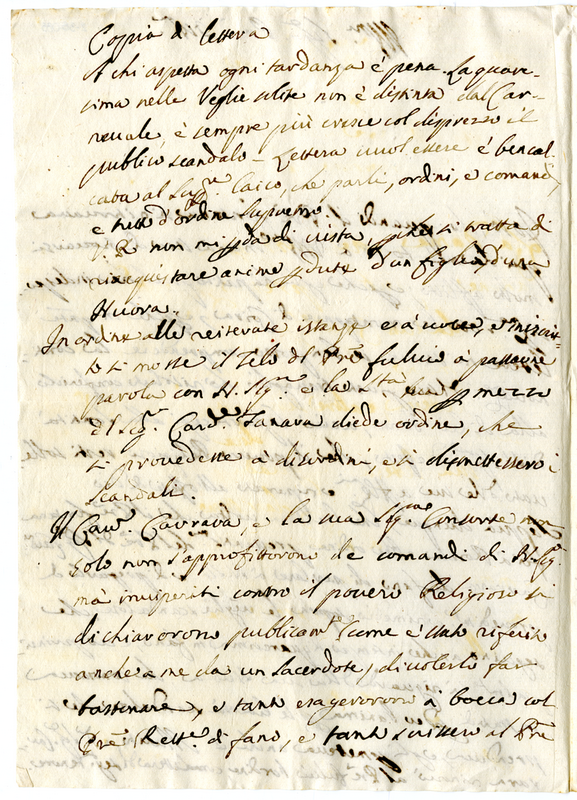 Copia di lettera
A chi aspetta ogni tardanza è pena. La quare-
sima nelle Veglie solite non è distinta dal Car-
neuale, è sempre più cresce col disprezzo il
publico scandalo - Lettera vuol essere é ben cal
cata al Sigre laico, che parli, ordini, e comandi,
e tutto d'ordine supremo
P. R. non mi pda di uista si tratta di
riacquistare anime pdute d'un figlio d'una
Nuora.
In ordine alle reiterate istanze e à uoce, e in iscrit-
to si mosse il Zelo del Pre fuluio à passarne
parola con N. Sigre e la Stà p mezzo
del Sigr Card. Tanara diede ordine, che
si prouedesse à disordini, e si dismettessero i
scandali.
Il Cavr Carrara, e la sua Sigra Consorte non
solo non s'approfittorono de comandi di N. Sigre
mà inuiperiti contro il pouero Religioso si
dichiarorono publicamte (come è stato riferito
anche a me da un sacerdote) di uolerlo far
bastonare, e tanto esagerorono à bocca col
Pre Rettre di fano, e tanto scrissero al Pre